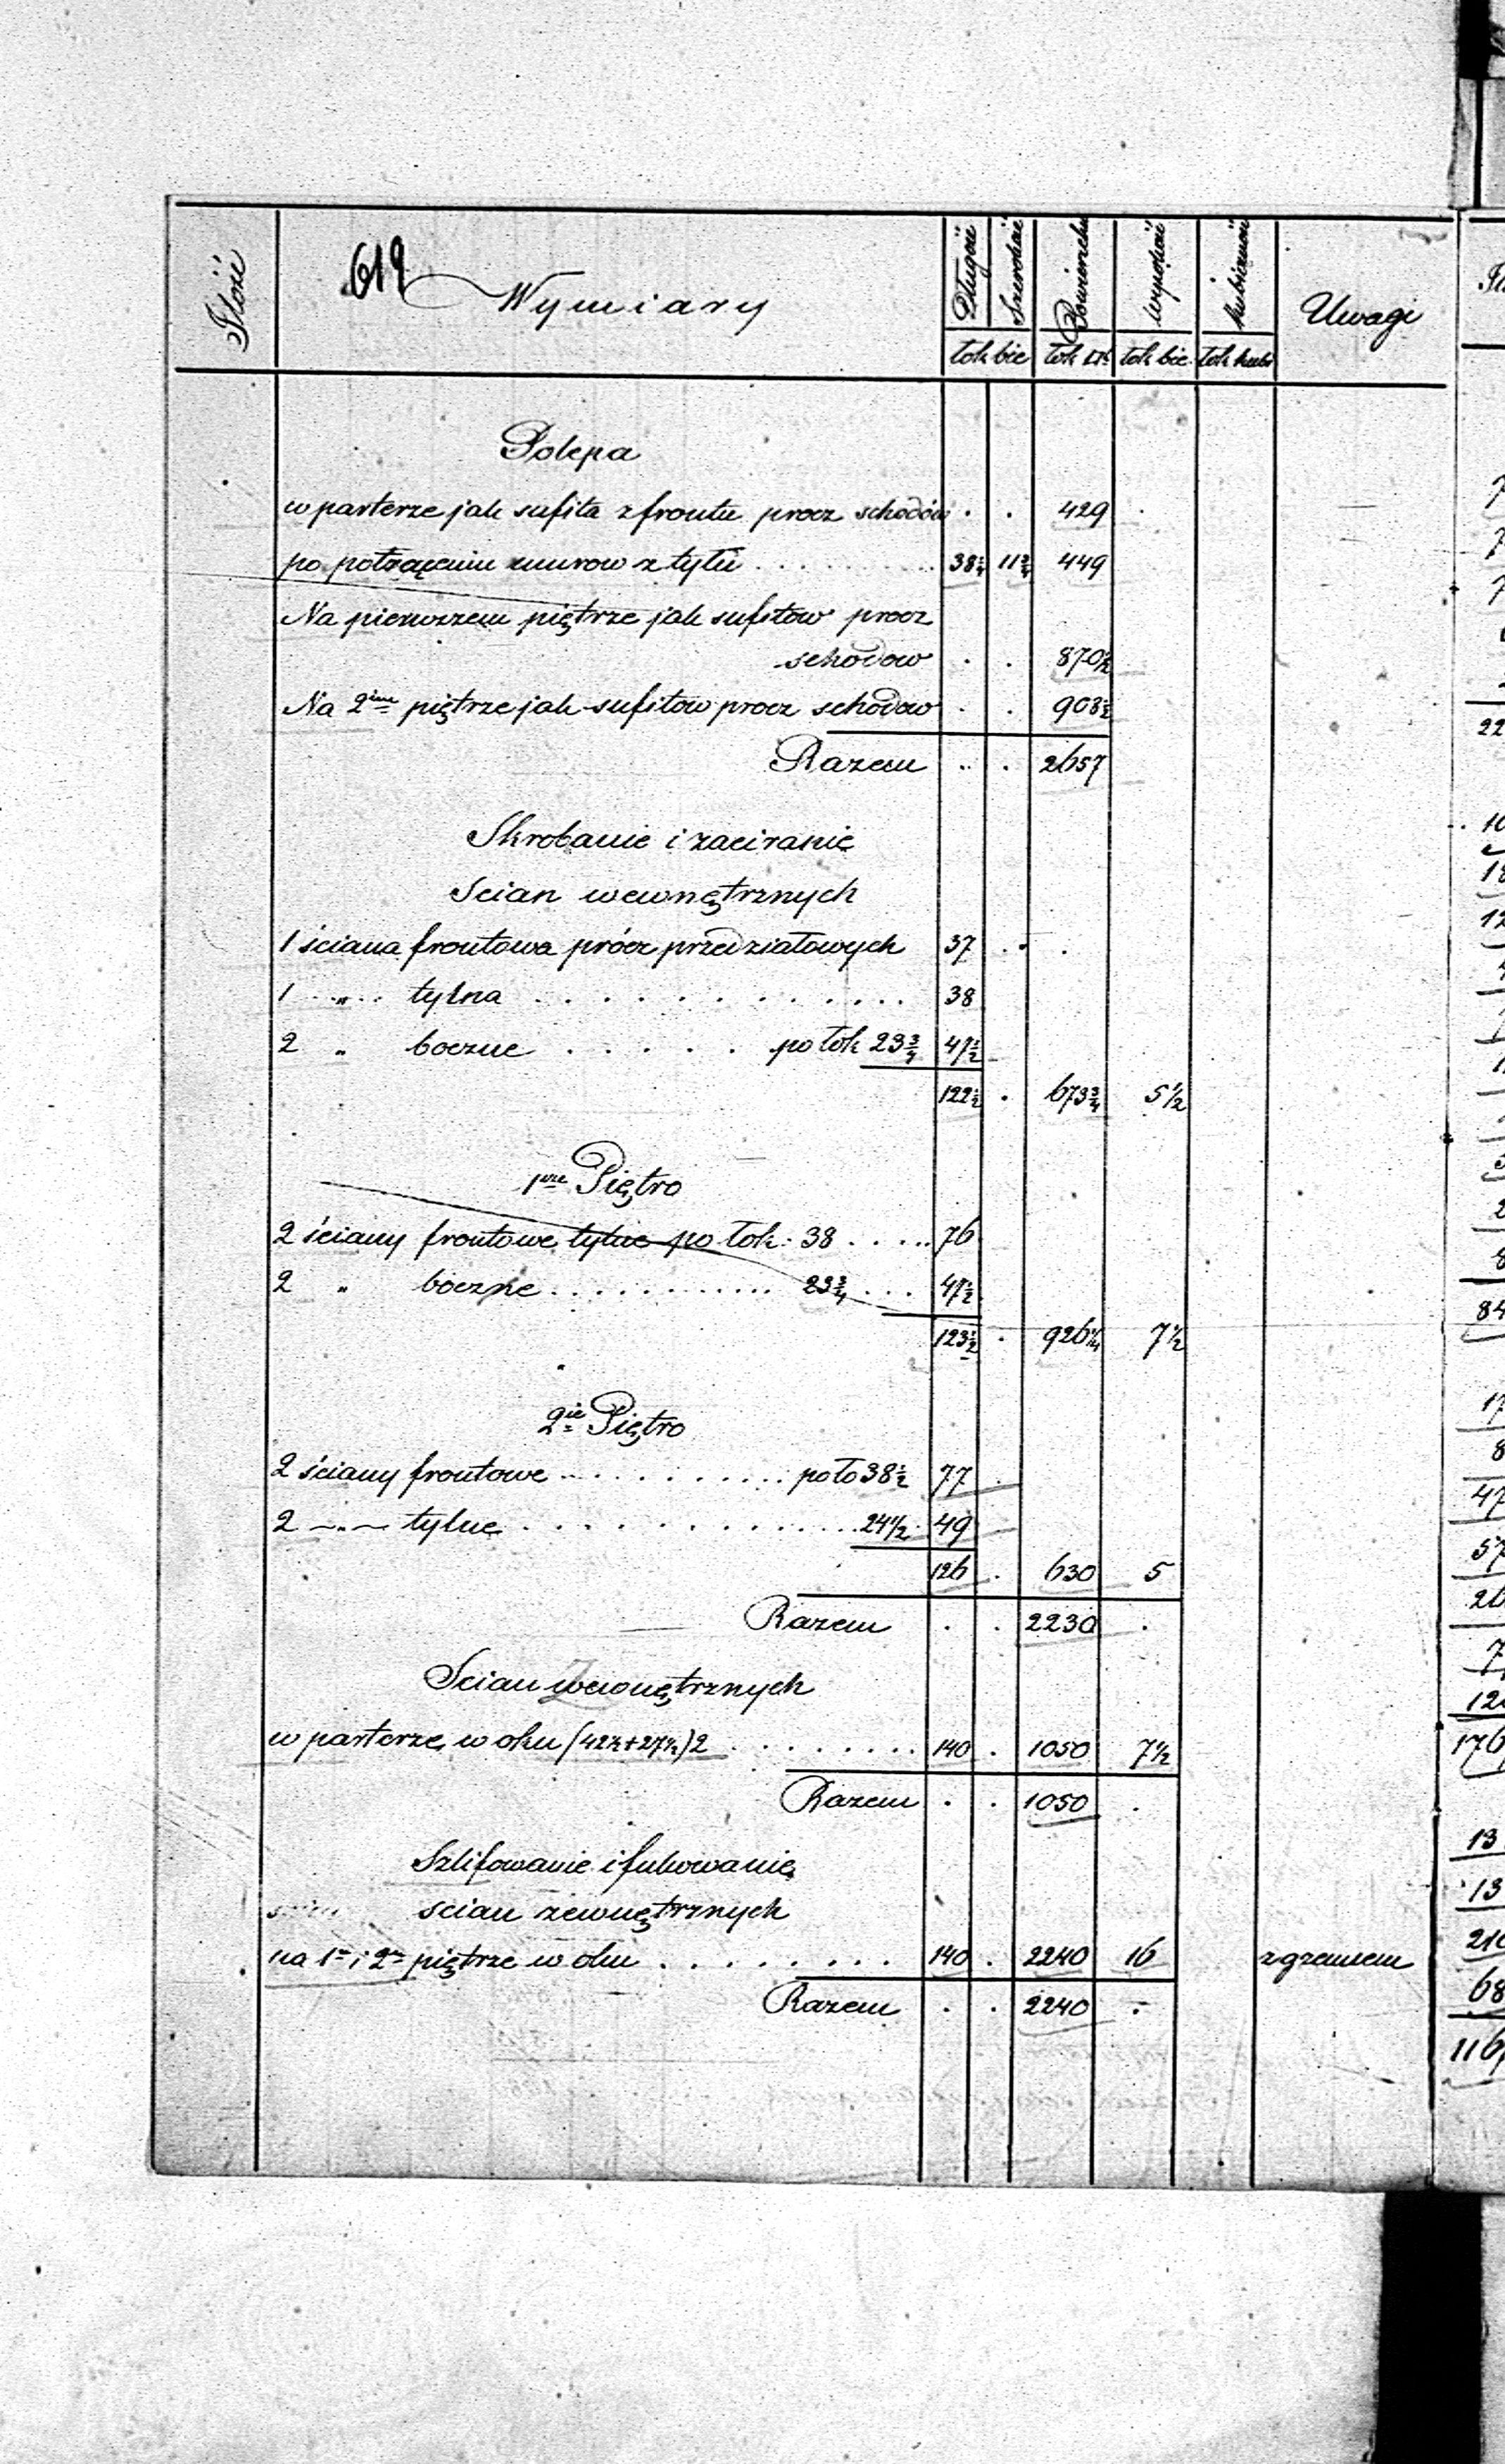 Ilość 619 Wymiary Długość Szerokość Powierzchn. wysokość kubiczność Uwagi
łok bie łok □ łok bie. łok kubi
Polepa
w parterze jak sufita z frontu procz schodów . . 429
po potrąceniu murow z tyłu . . . . . . . 38¼ 11¾ 449
Na pierwszem piętrze jak sufitow procz
schodow . . 870½
Na 2im piętrze jak sufitow procz schodow . . 908½
Razem . . 2657
Skrobanie i zacieranie
Scian wewnętrznych
1 ściana frontowa prócz przedziałowych 37 . . .
1 „ tylna . . . . . . . . . . . . . 38
2 „ boczne . . . . . . po łok 23¾ 47½
122½ . 673¾ 5½
1wsze Piętro
2 ściany frontowe tylne po łok. 38 . . . . . 76
2 „ boczne . . . . . . . . . . . . 23¾ . . . 47½
123½ . 926¼ 7½
2ie Piętro
2 ściany frontowe . . . . . . . . . . po ło 38½ 77
2 „ tylne . . . . . . . . . . . . . 24½ 49
126 . 630 5
Razem . . 2230 .
Scian zewnętrznych
w parterze w oku (42½+27½)2 . . . . . . . . 140 . 1050 7½
Razem . . 1050 .
Szlifowanie i fukowanie
scian zewnętrznych
na 1m i 2m piętrze w oku . . . . . . . . 140 . 2240 16 z gzemsem
Razem . . 2240 .